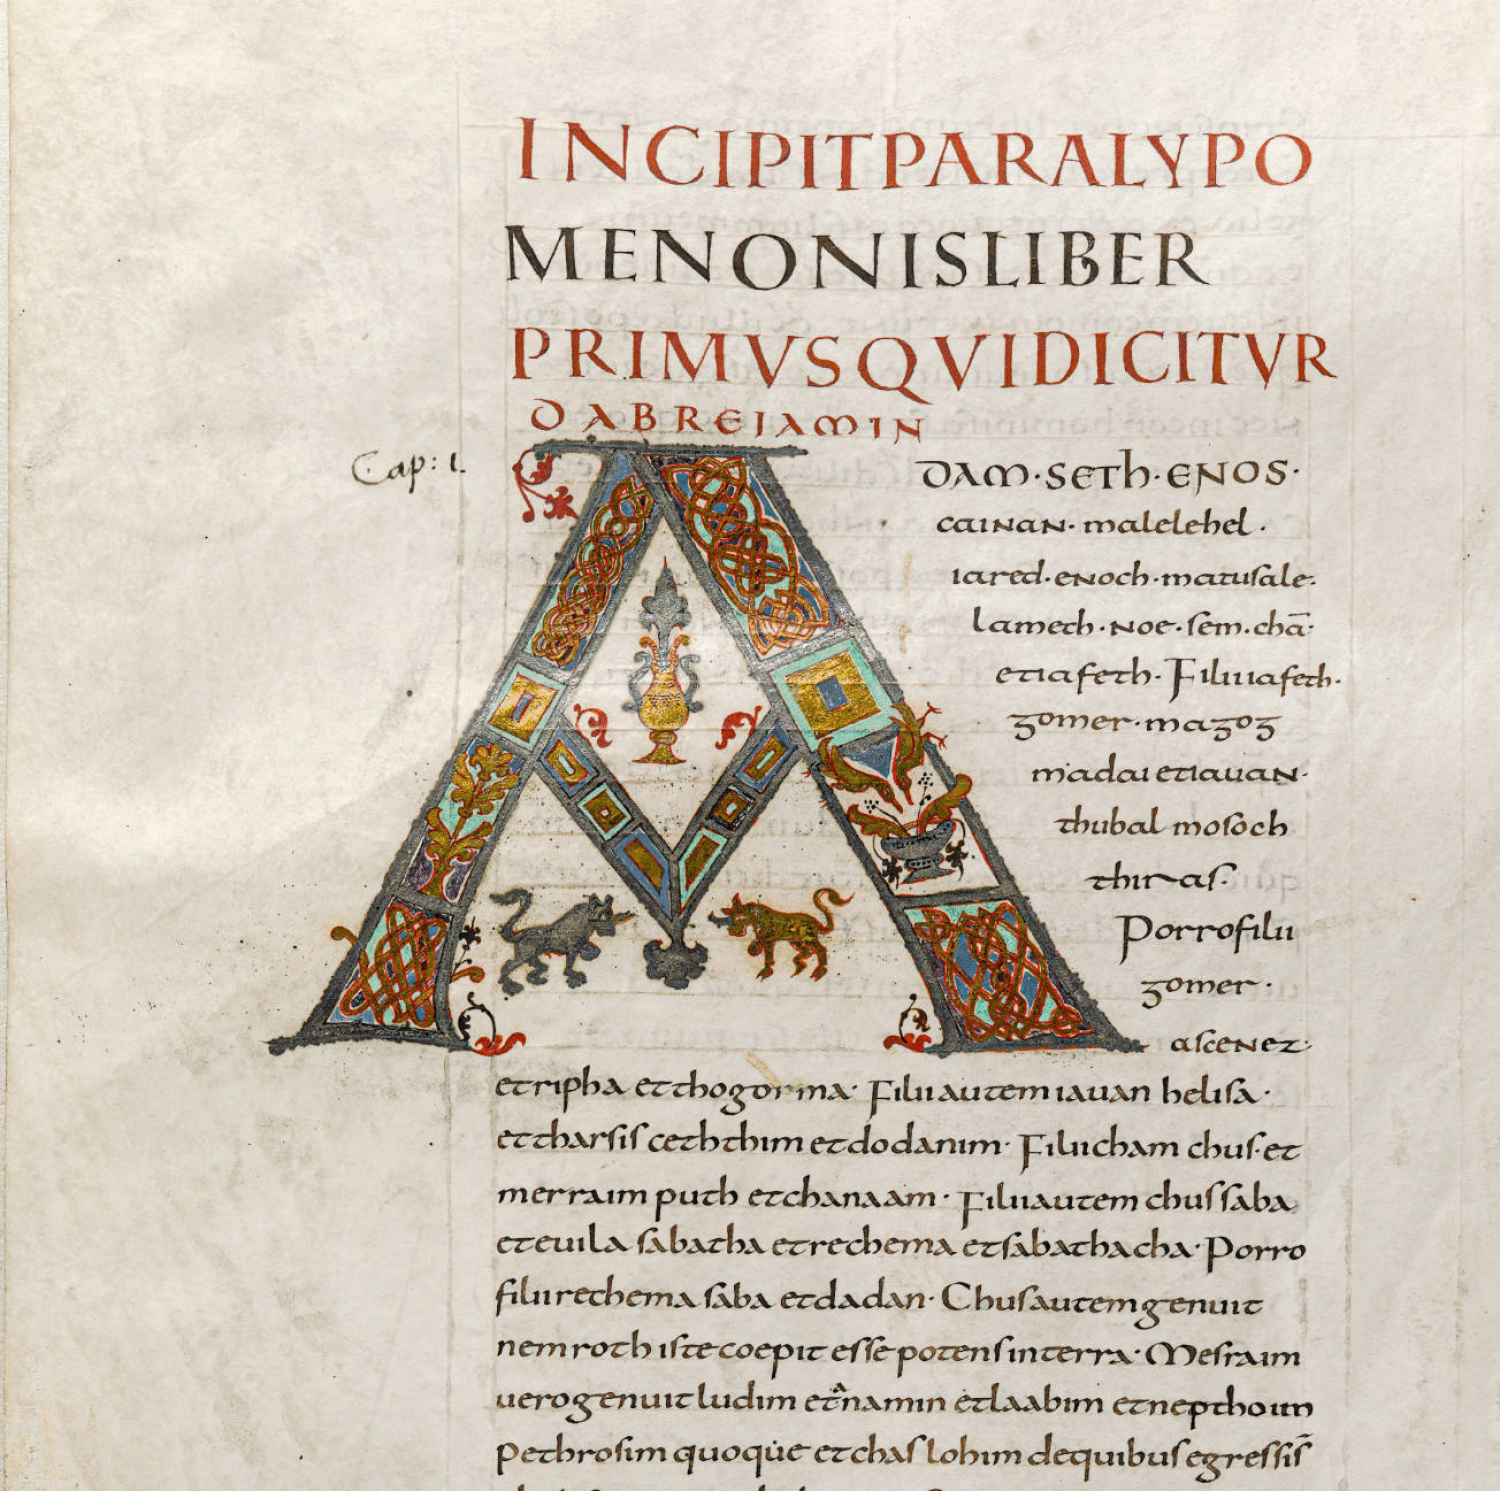 INCIPIT PARALYPO
MENON IS LIBER
PRIMVS QVI DICITVR
DABREIAMIN
Cap: 1.
ADAM · SETH · ENOS ·
CAINAN · malelehel ·
iared · enoch · matusale ·
lameth · noe · sem · chā ·
et iafeth · Filii iafeth ·
gomer · magog
madai et iauan ·
thubal mosoch
thiras ·
Porro filii
gomer ·
ascenez ·
et ripha et thogorma · Filii autem iauan helisa ·
et tharsis ceththim et dodanim · Filii cham chus · et
merraim puth et chanaam · Filii autem chus saba
et euila sabatha et rechema et sabathacha · Porro
filii rethema saba et dadan · Chus autem genuit
nemroth iste coepit esse potens in terra · Mesraim
uero genuit ludim et namin et laabim et nepthoim
Pethrosim quoque et chaslohim de quibus egressis̄